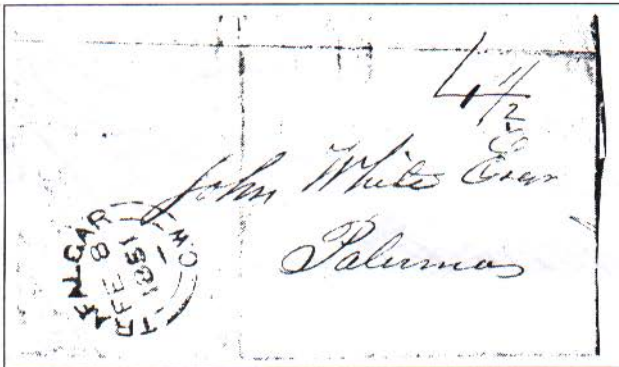 4 1/2
John White Esqr
Palermo
TRAFALGAR C.W
FE 8
1851